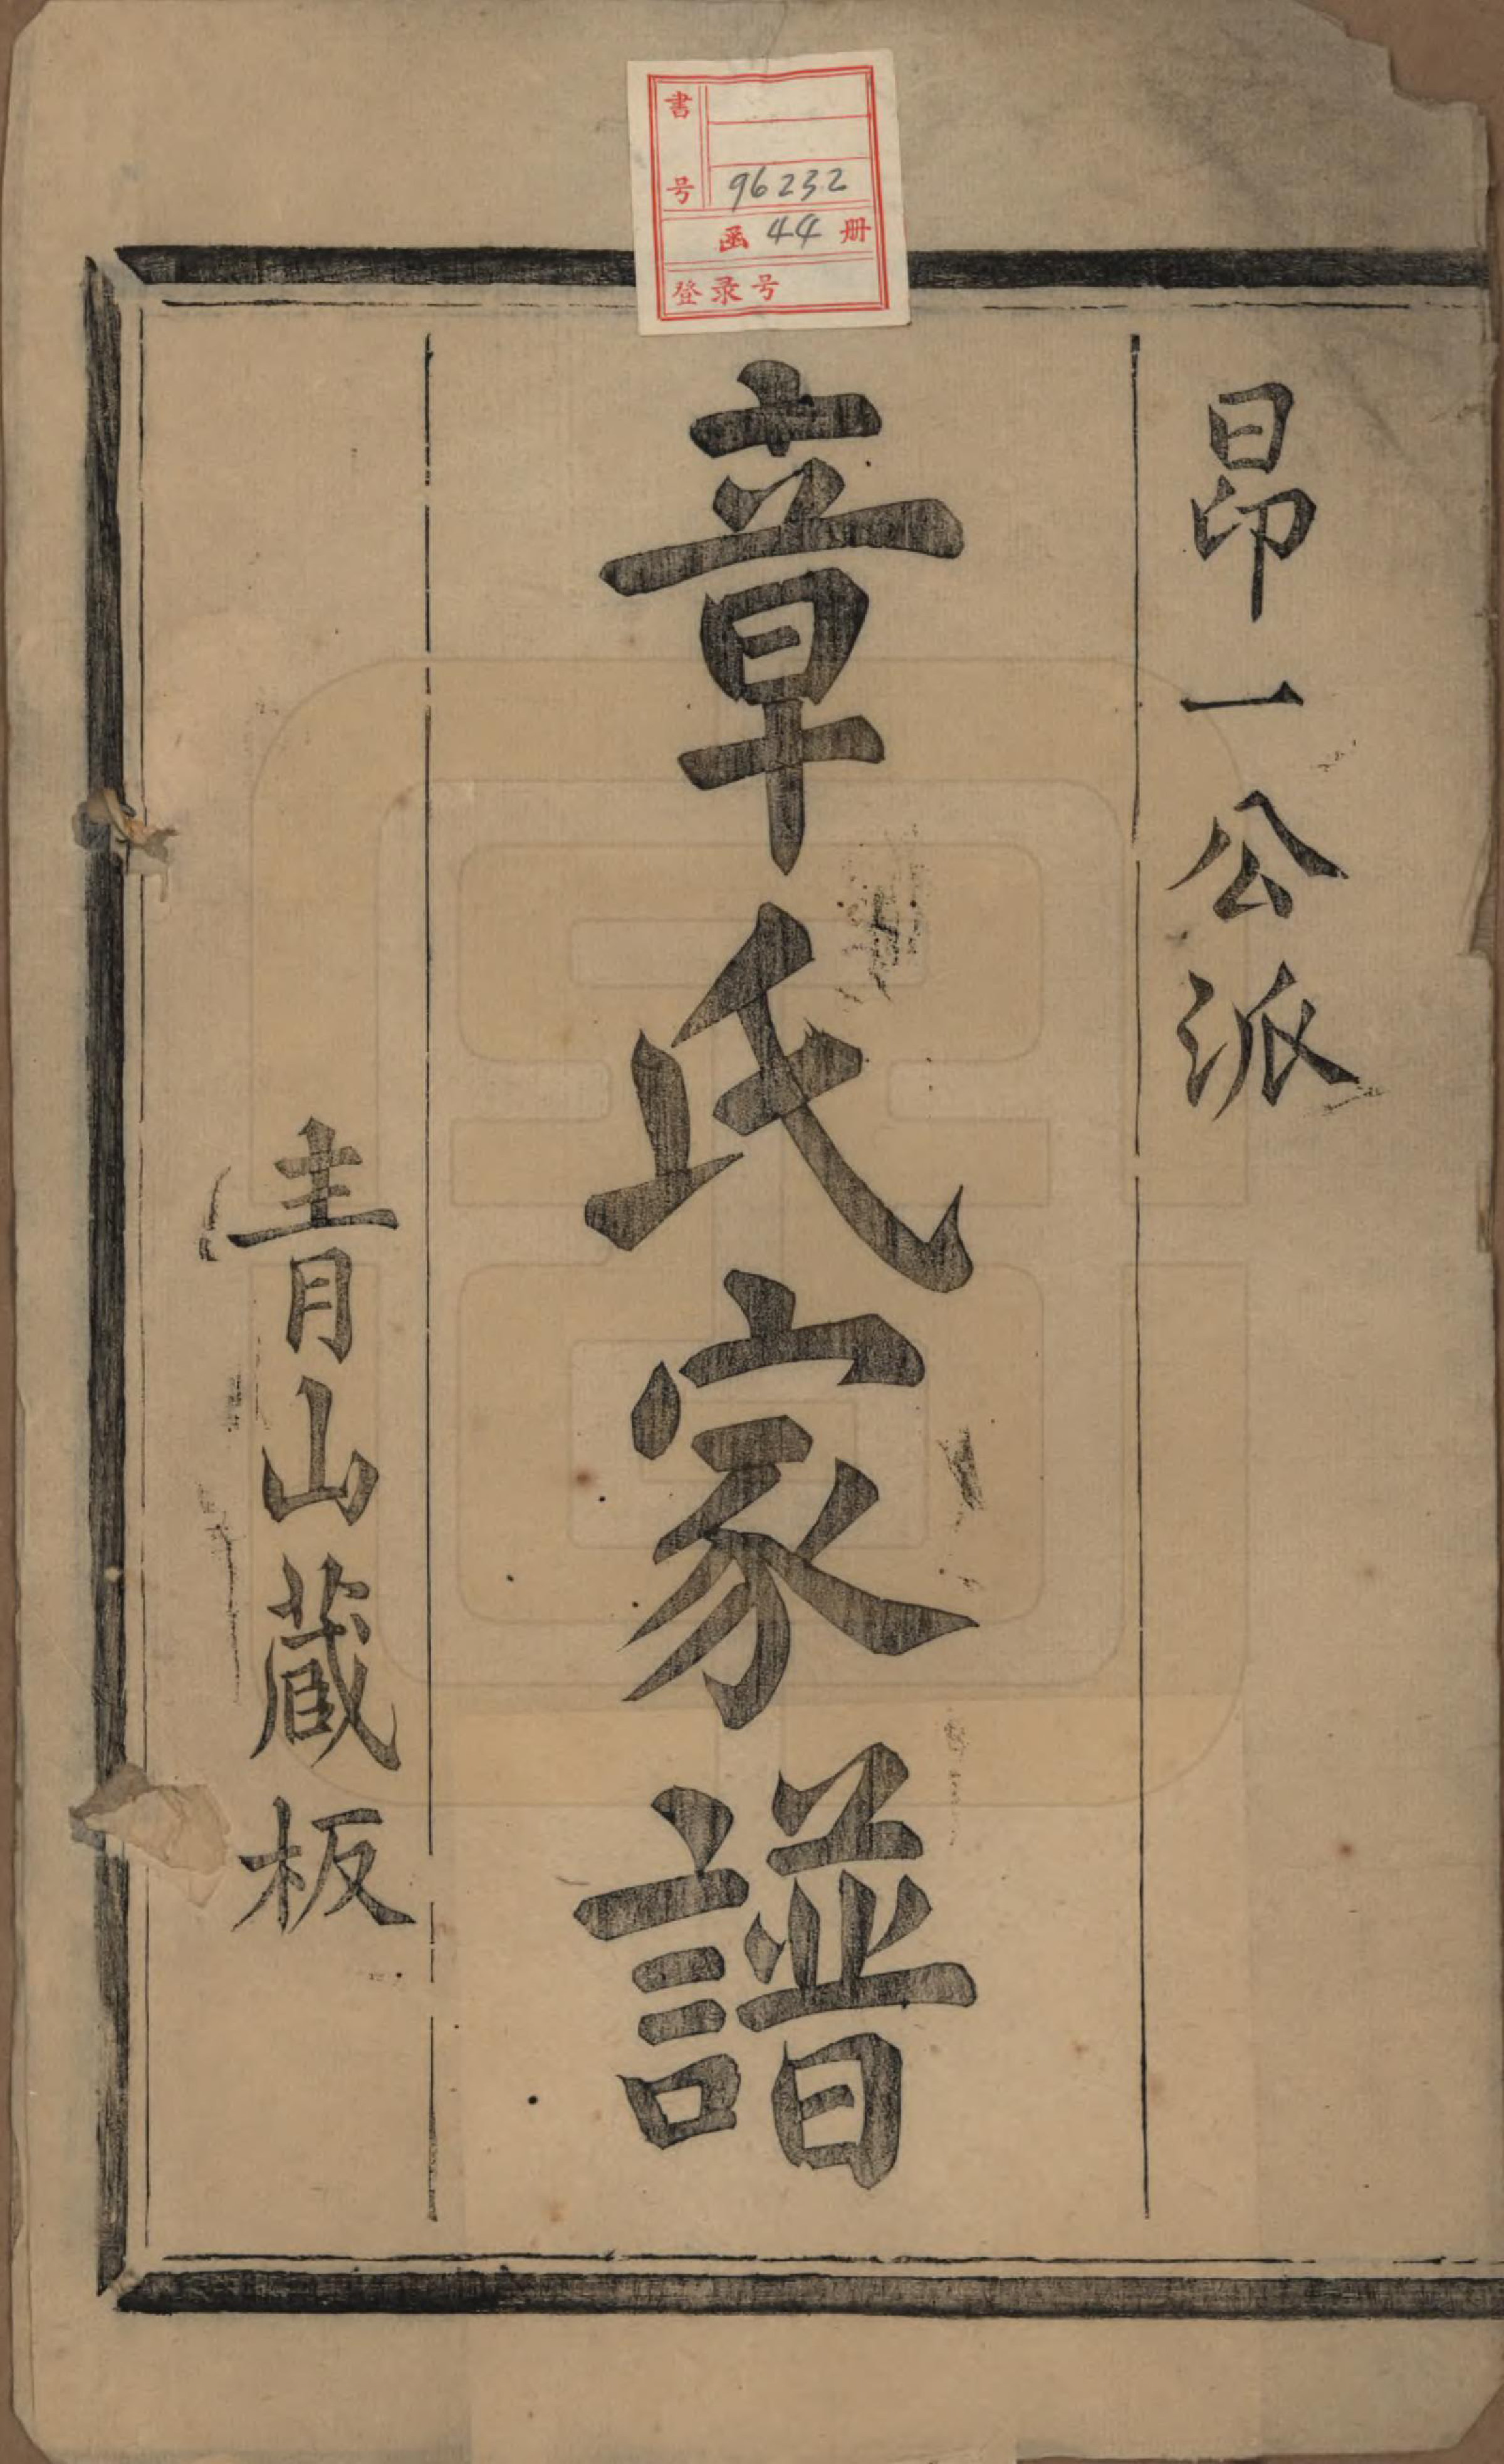 書号 96232
函 44 册
登录号
昂一公派
章氏家譜
青山蔵板